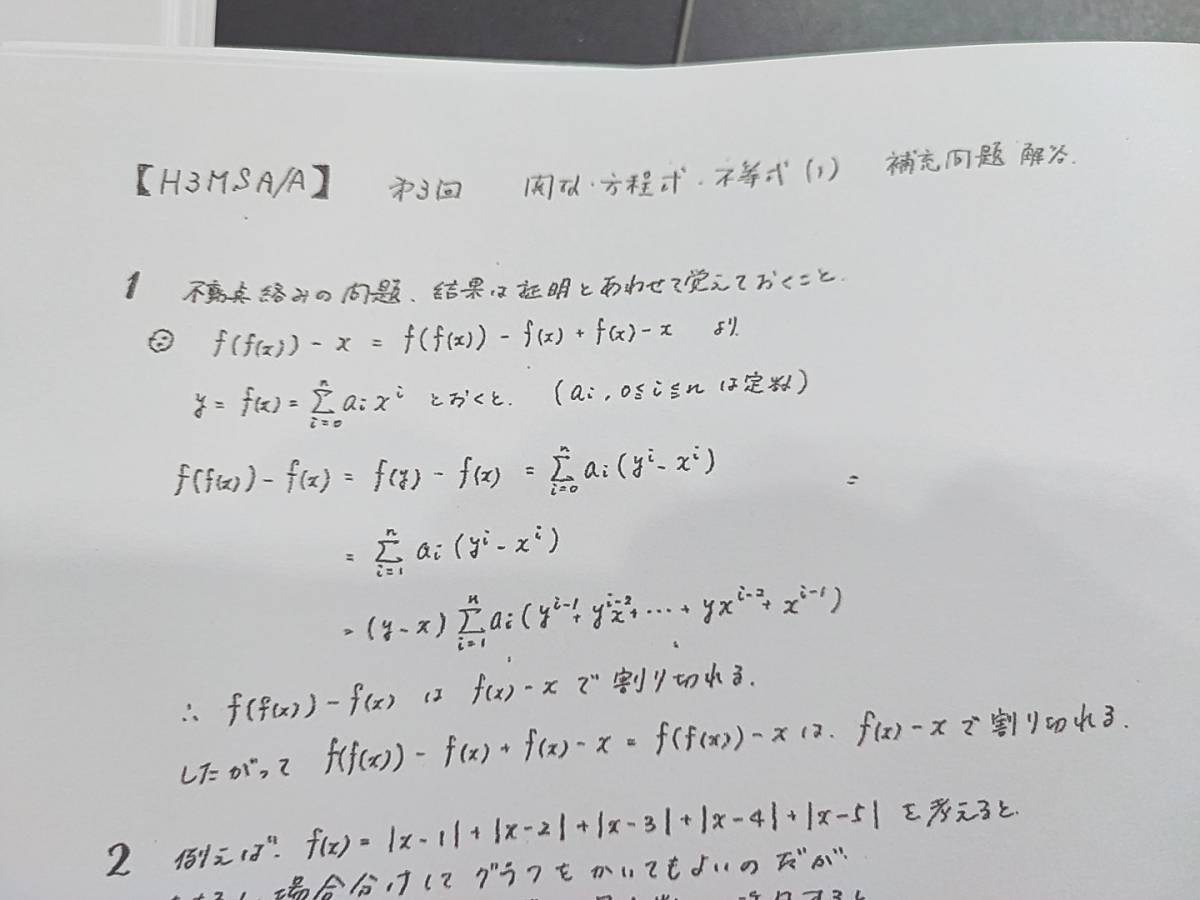 【H3MSA/A】 第3回 関数・方程式・不等式(1) 補充問題 解答.
1 不動点絡みの問題、結果は証明とあわせて覚えておくこと.
∵ f(f(x)) - x = f(f(x)) - f(x) + f(x) - x より
y = f(x) = Σ_{i=0}^{n} a_i x^i とおくと. (a_i, 0≦i≦n は定数)
f(f(x)) - f(x) = f(y) - f(x) = Σ_{i=0}^{n} a_i (y^i - x^i) =
= Σ_{i=1}^{n} a_i (y^i - x^i)
= (y - x) Σ_{i=1}^{n} a_i (y^{i-1} + y^{i-2}x + … + yx^{i-2} + x^{i-1})
∴ f(f(x)) - f(x) は f(x) - x で割り切れる.
したがって f(f(x)) - f(x) + f(x) - x = f(f(x)) - x は、f(x) - x で割り切れる.
2 例えば、f(x) = |x-1| + |x-2| + |x-3| + |x-4| + |x-5| を考えると.
場合分けしてグラフをかいてもよいのだが、